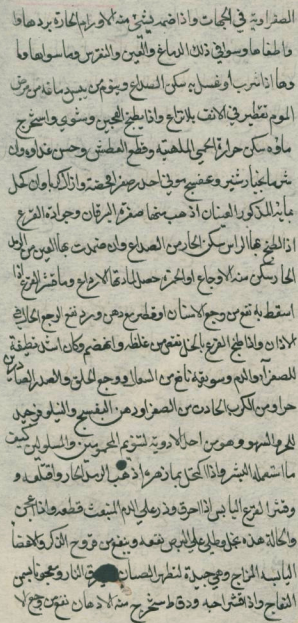 الصفراوية في الحميات واذا ضمد بشئ منه الاورام الحارة بردها
واطفاها وسوا في ذلك الدماغ والعين والنقرس وماسواها
وماءها اذا شرب او غسل به سكن الصداع وينوم من يبس دماغه من مرض
الموم تقطير في الانف بلا رتاع واذا لطخ بعجين وشوي واستخرج
ماؤه سكن حرارة الحمى الملهبة وقطع العطش وحسن غذاوه وان
شرب بخيار شنبر وبنفسج مربى احدر صفرا محضة واذا وان كحل
بمايه المذكور العينان اذهب منهما صفرة اليرقان وجرادة القرع
اذا لطخ بها الراس سكن الحار من الصداع وان ضمدت بها العين من الرمد
الحار سكن منه الاوجاع او الحمرة حصل لمادتها الارداع وماء قشر القرع اذا
استعط به نفع من وجع الاسنان او قطر مع دهن ورد نفع الوجع الحار في
الاذان واذا طبخ القرع بالخل نقص من غلظه وانهضم وكان اشد تطفية
للصفرا والدم وسويقه نافع من السعال ووجع الحلق والصدر
حرا ومن الكرب الحادث من الصفرا ودهن البنفسج والنيلوفر جيد
للحر والسهر وهو من احد الادوية لتنويم المحمومين والمسلولين كيف
ما استعمله البشر واذا اكتحل بما زهره اذهب الرمد الحار واقلعه
وقشر القرع اليابس اذا احرق وذر على الدم المنبعث قطعه واذا عجن
والحالة هذه بخل وطلي على البرص نفعه وينفع من قروح الذكر والاعضا
اليابسة المزاج وهي جيدة لتطهر الصبيان حرق النار ومعجونا بسمن
النعاج واذا قشر حبه ودق استخرج منه الادهان نفع من وجع الا